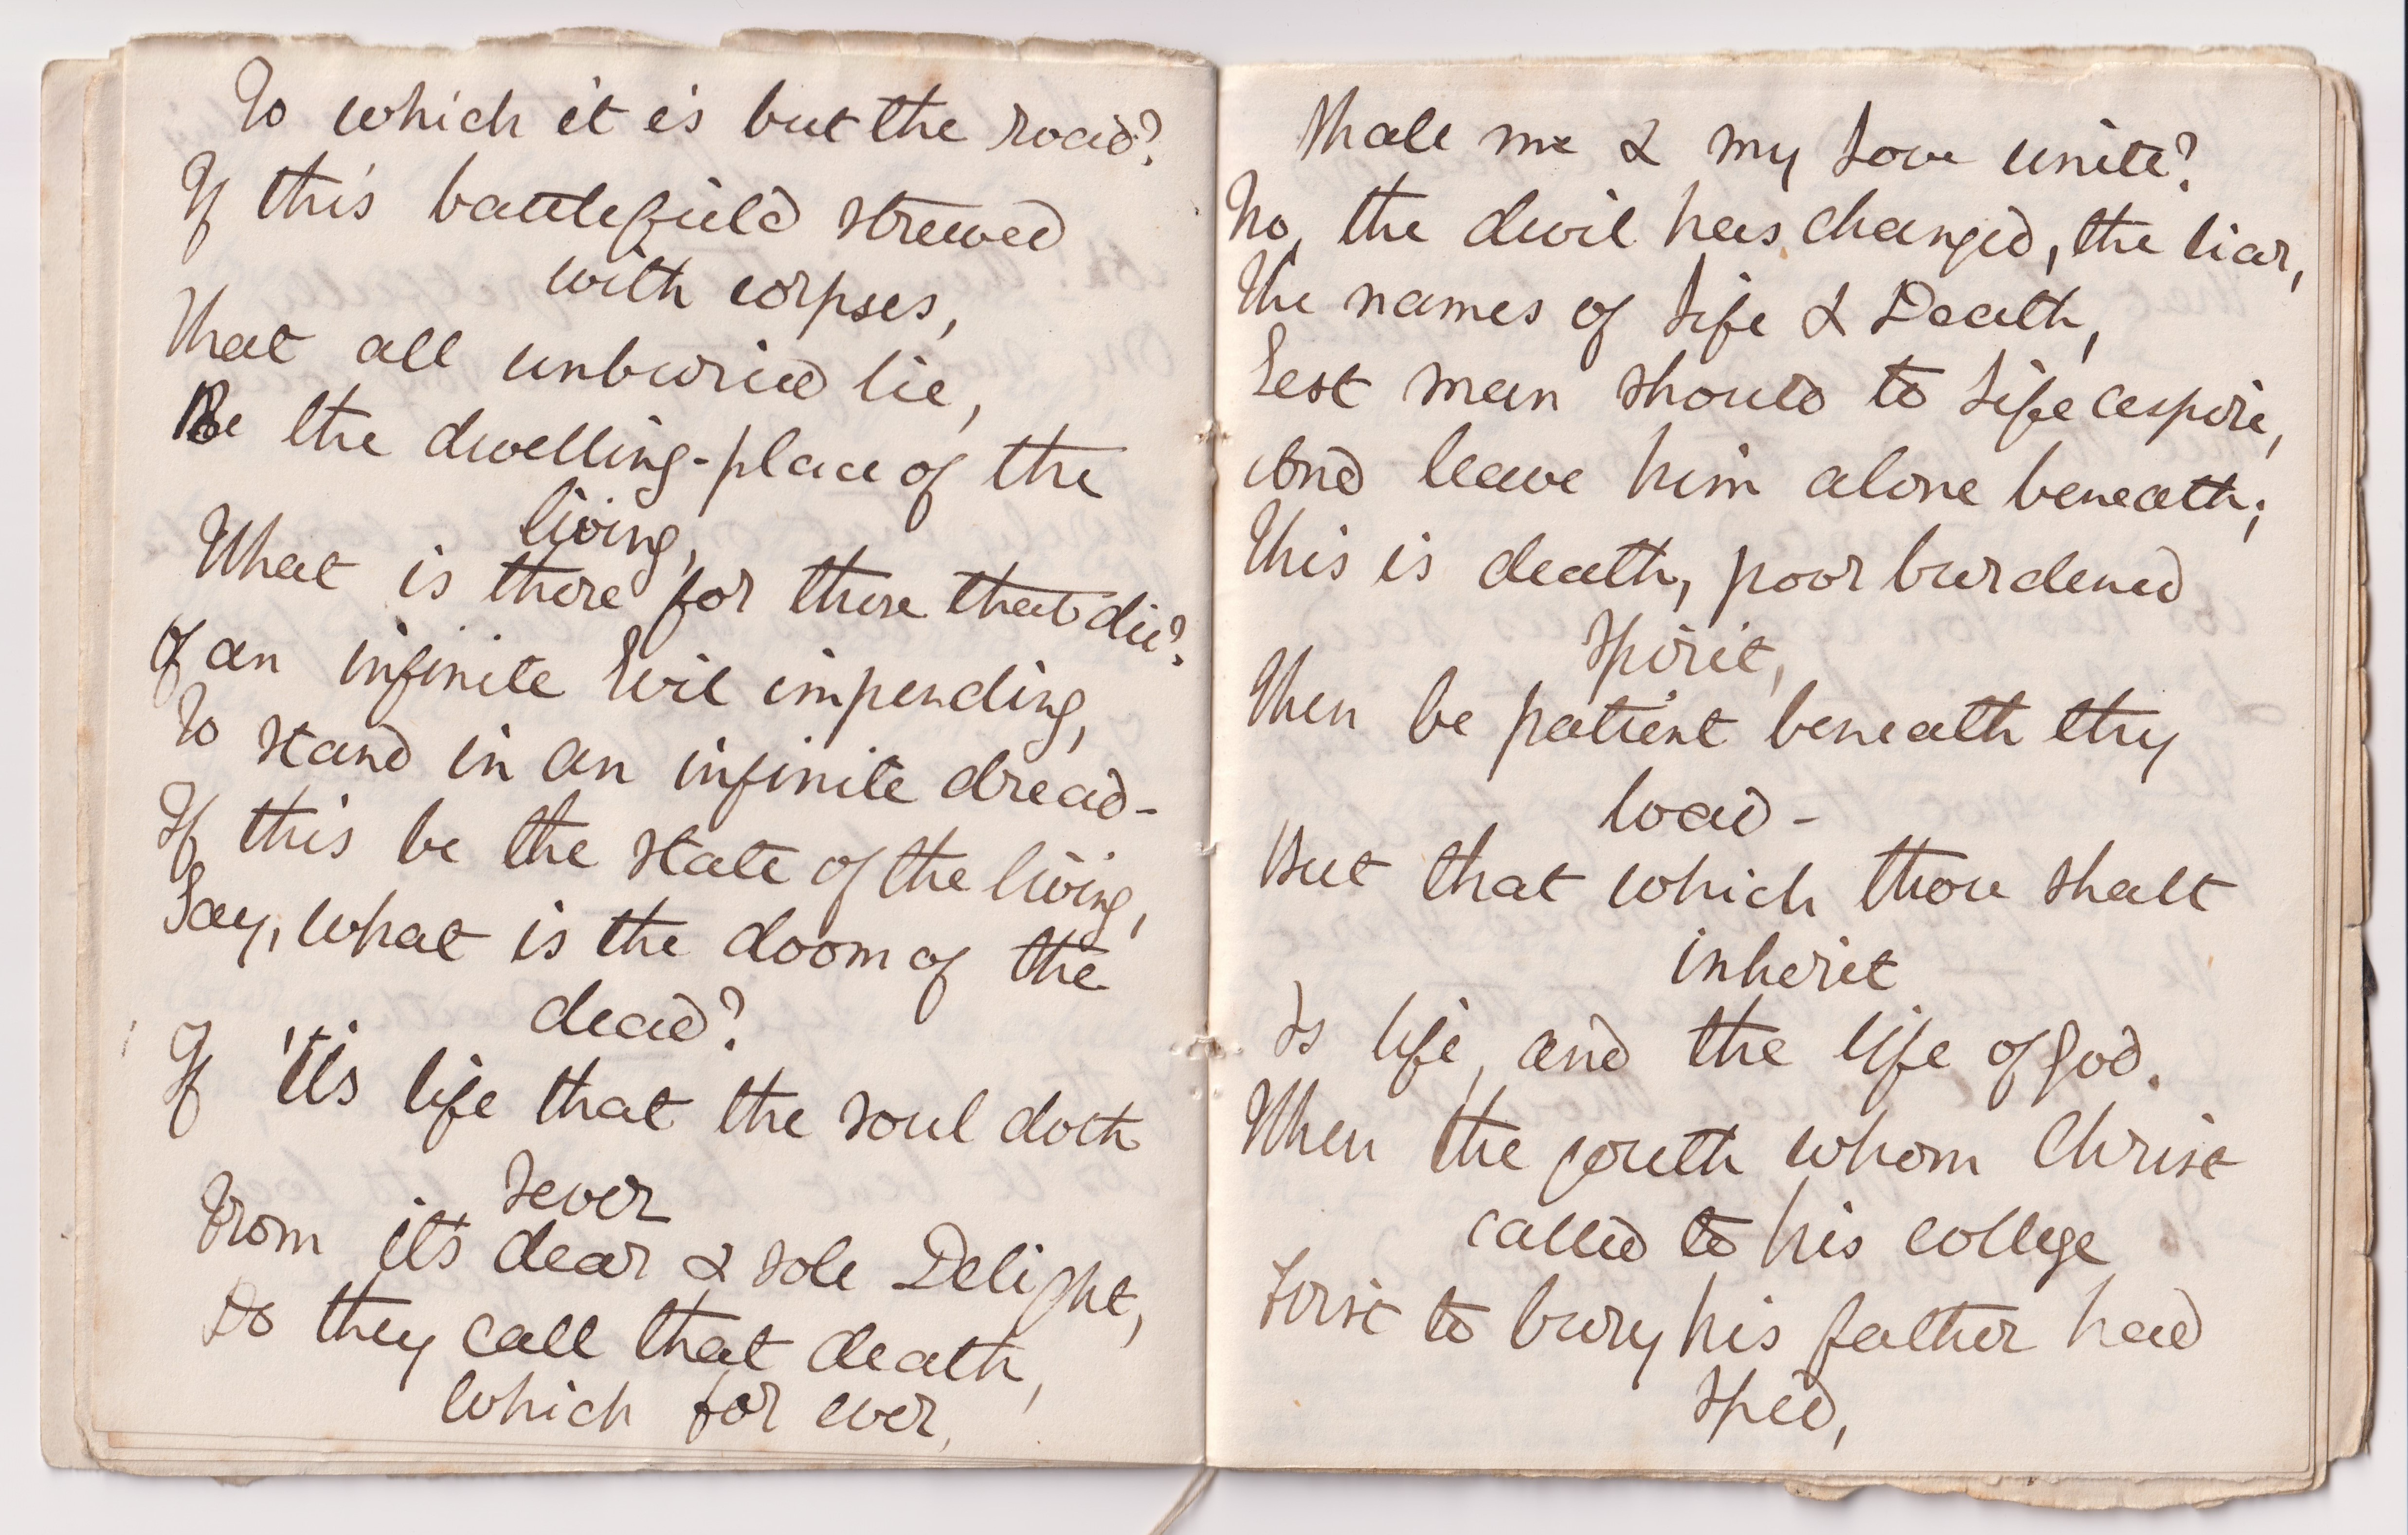 To which it is but the road?
If this battlefield strewed
with corpses,
That all unburied lie,
Be the dwelling-place of the
living,
What is there for those that die?
If an infinite Evil impending,
To stand in an infinite dread-
If this be the state of the living,
Say, what is the doom of the
dead?
If 'tis life that the soul doth
sever
From it's dear & sole Delight,
Do they call that death,
which for ever,
Shall me & my Love unite?
No, the devil has changed, the liar,
The names of Life & Death,
Lest man should to Life aspire,
And leave him alone beneath;
This is death, poor burdened
Spirit,
Then be patient beneath thy
load-
But that which thou shalt
inherit
Is life, and the life of God.
When the youth whom Christ
called to his college
First to bury his father had
sped,